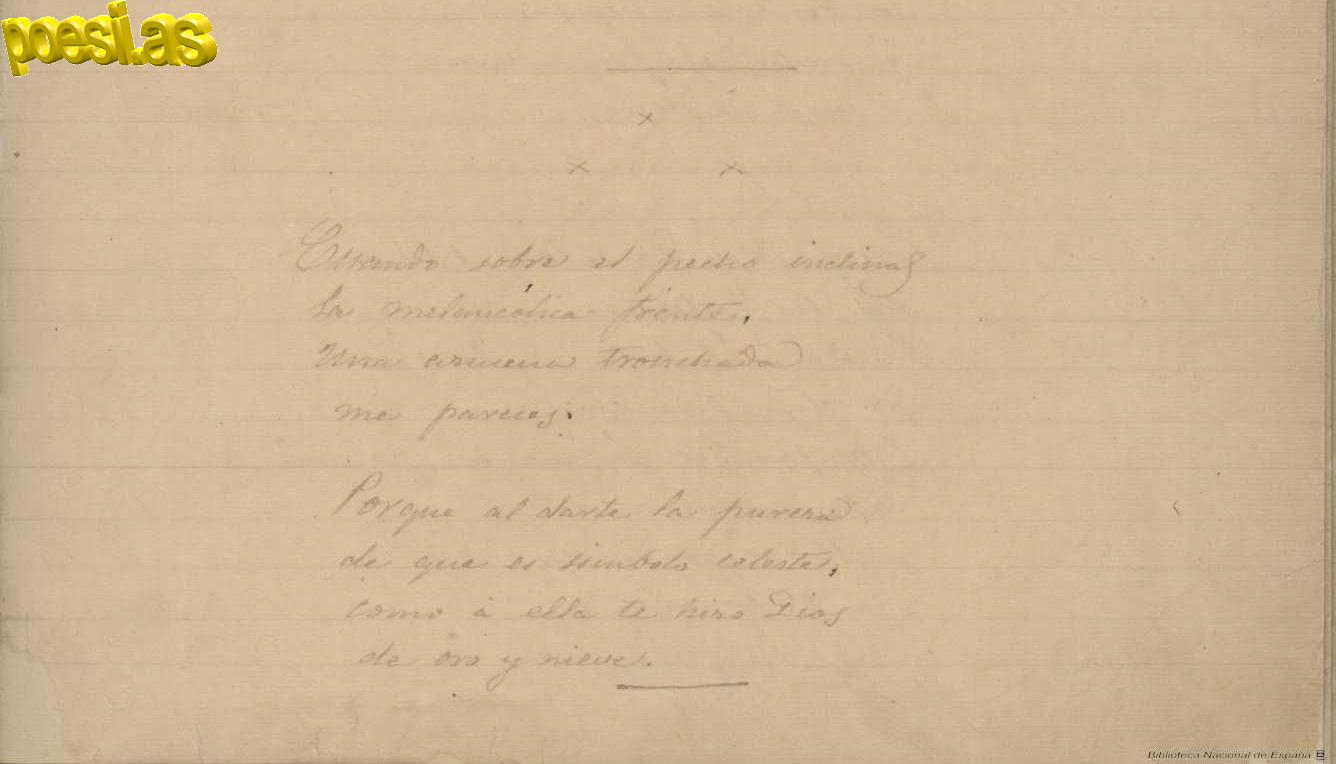 poesi.as
x
x x
Cuando sobre el pecho inclinas
la melancólica frente,
Una azucena tronchada
me pareces.
Porque al darte la pureza
de que es simbolo celeste,
como à ella te hizo Dios
de oro y nieve.
Biblioteca Nacional de España